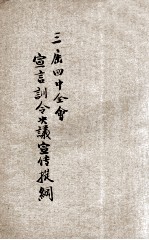 三屆四中全會
宣言訓令決議宣传提綱